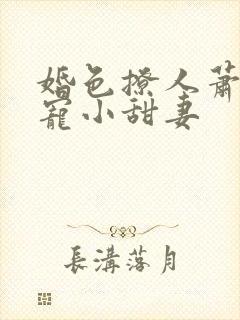 婚色撩人萧
宠小甜妻
長溝落月